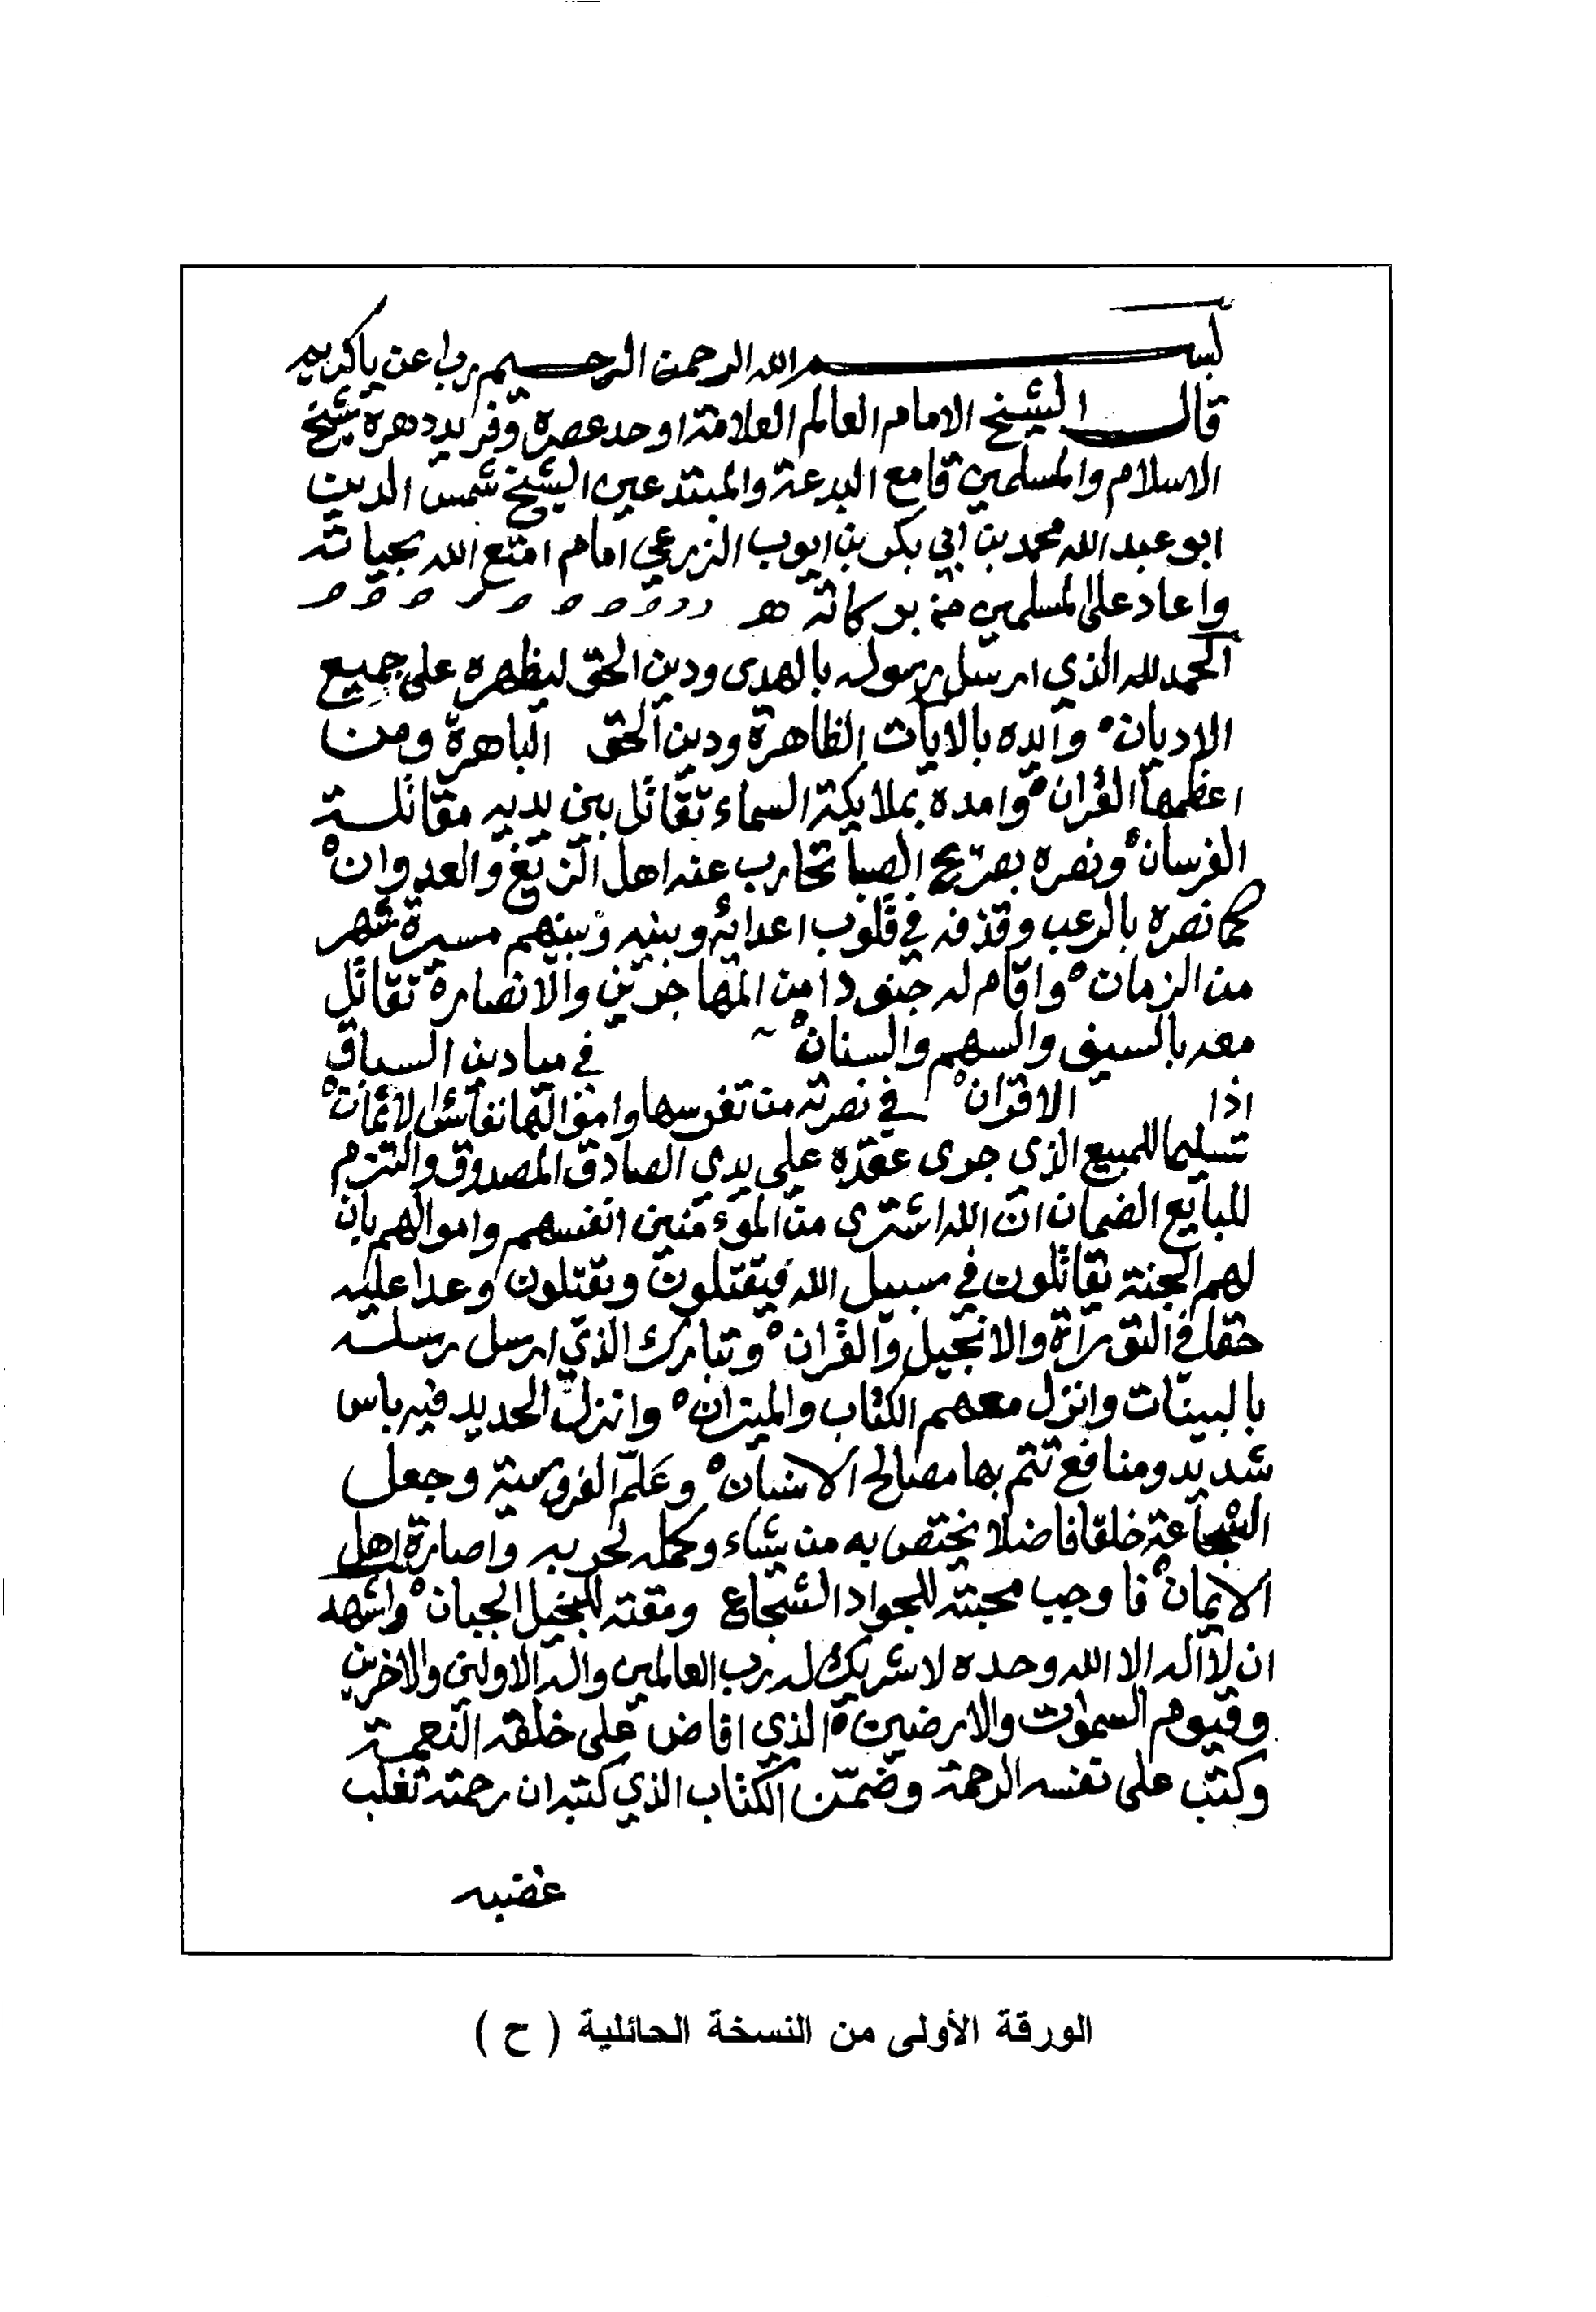 بسم الله الرحمن الرحيم رب اعن ياكريم
قال الشيخ الامام العالم العلامة اوحد عصره وفريد دهره شيخ
الاسلام والمسلمين قامع البدعة والمبتدعين الشيخ شمس الدين
ابو عبد الله محمد بن ابي بكر بن ايوب الزرعي امام امتع الله بحياته
واعاد على المسلمين من بركاته
الحمد لله الذي ارسل رسوله بالهدى ودين الحق ليظهره على جميع
الاديان وايده بالايات الظاهرة ودين الحق الباهرة ومن
اعظمها القران وامده بملايكة السماء تقاتل بين يديه مقاتلة
الفرسان ونصره بريح الصبا تحارب عنه اهل الزيغ والعدوان
كما نصره بالرعب وقذفه في قلوب اعدائه وبينه وبينهم مسيرة شهر
من الزمان واقام له جنودا من المهاجرين والانصار تقاتل
معه بالسيف والسهم والسنان في ميادين السباق
اذا الاقران في نصرته من نفوسها واموالها نفائس الاثمان
تسليما للمبيع الذي جرى عقده على يدي الصادق المصدوق والتزم
للبايع الضمان ان الله اشترى من الموءمنين انفسهم واموالهم بان
لهم الجنة يقاتلون في سبيل الله فيقتلون ويقتلون وعدا عليه
حقا في التوراة والانجيل والقران وتبارك الذي ارسل رسله
بالبينات وانزل معهم الكتاب والميزان وانزل الحديد فيه باس
شديد ومنافع تتم بها مصالح الانسان وعلّم الفروسية وجعل
الشجاعة خلقا فاضلا يختص به من يشاء وكمله لحزبه وانصاره اهل
الايمان فاوجب محبته للجواد الشجاع ومقته للبخيل الجبان واشهد
ان لا اله الا الله وحده لا شريك له رب العالمين واله الاولين والاخرين
وقيوم السموات والارضين الذي افاض على خلقه النعمة
وكتب على نفسه الرحمة وضمّن الكتاب الذي كتبه ان رحمته تغلب
غضبه
الورقة الأولى من النسخة الحائلية ( ح )